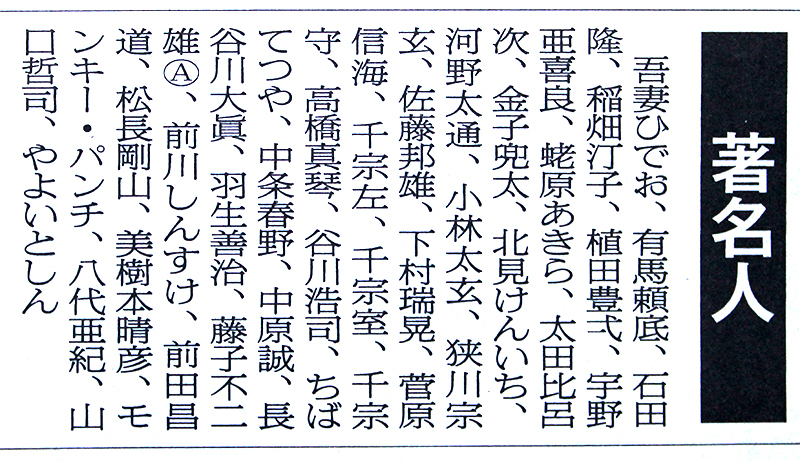 著名人
吾妻ひでお、有馬頼底、石田
隆、稲畑汀子、植田豊弌、宇野
亜喜良、蛯原あきら、太田比呂
次、金子兜太、北見けんいち、
河野太通、小林太玄、狭川宗
玄、佐藤邦雄、下村瑞晃、菅原
信海、千宗左、千宗室、千宗
守、高橋真琴、谷川浩司、ちば
てつや、中条春野、中原誠、長
谷川大眞、羽生善治、藤子不二
雄Ⓐ、前川しんすけ、前田昌
道、松長剛山、美樹本晴彦、モ
ンキー・パンチ、八代亜紀、山
口哲司、やよいとしん